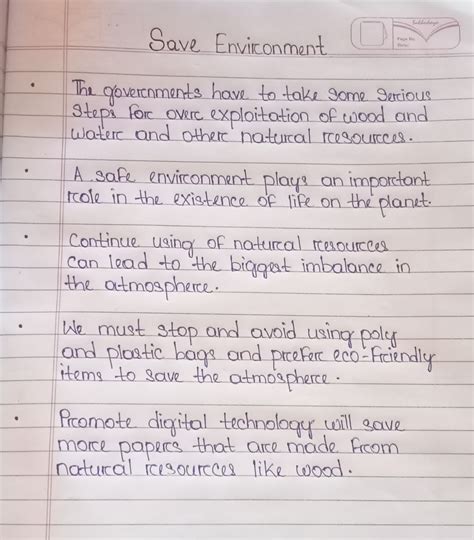 Save Environment
• The governments have to take some serious
steps for over exploitation of wood and
water and other natural resources.
• A safe environment plays an important
role in the existence of life on the planet.
• Continue using of natural resources
can lead to the biggest imbalance in
the atmosphere.
• We must stop and avoid using poly
and plastic bags and prefer eco-friendly
items to save the atmosphere.
• Promote digital technology will save
more papers that are made from
natural resources like wood.